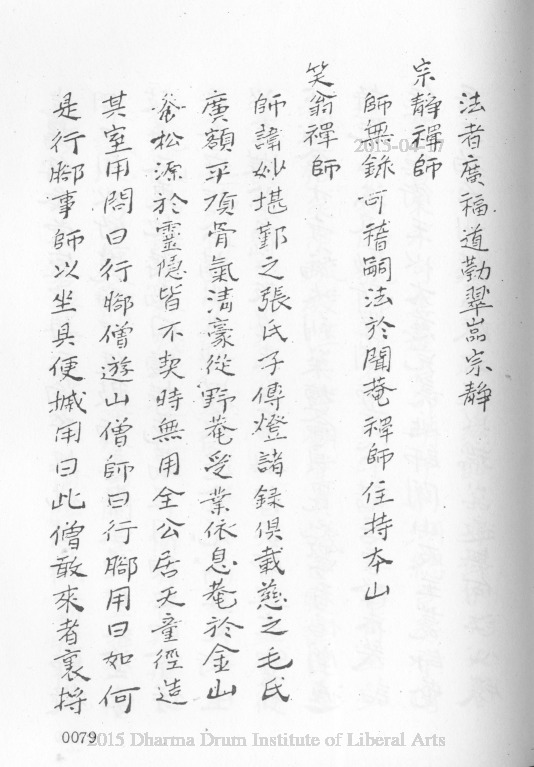 法者廣福道勤翠嵓宗靜
宗靜禪師
師無錄可稽嗣法於聞菴禪師住持本山
笑翁禪師
師諱妙堪鄞之張氏子傳燈諸錄俱載慈之毛氏
廣額平頂骨氣清豪從野菴受業依息菴於金山
叅松源於靈隱皆不契時無用全公居天童徑造
其室用問曰行腳僧遊山僧師曰行腳用曰如何
是行腳事師以坐具便摵用曰此僧敢來者裏捋
0079
2015-04-17
2015 Dharma Drum Institute of Liberal Arts